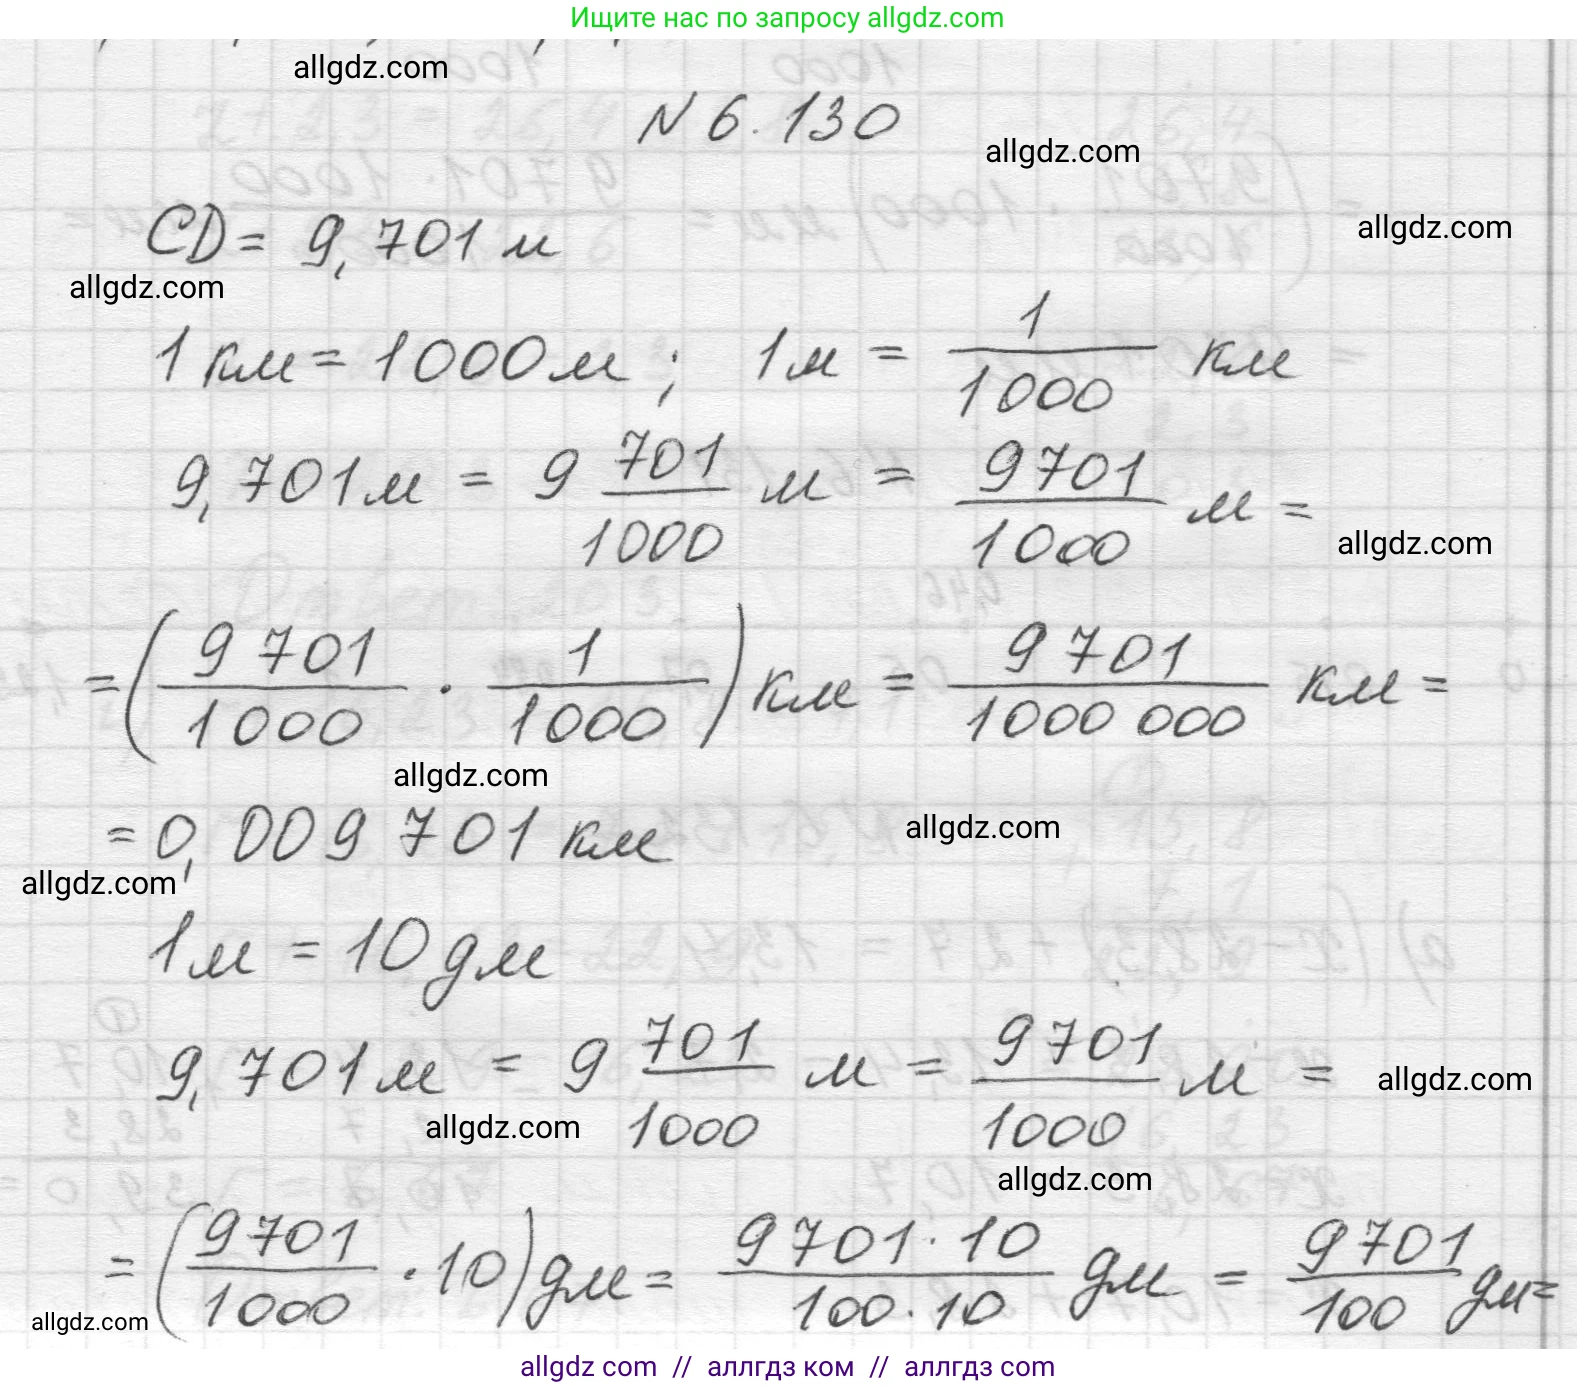 Ищите нас по запросу allgdz.com
allgdz.com
N 6.130
allgdz.com
CD = 9,701 м
allgdz.com
allgdz.com
1 км = 1000 м ; 1 м = 1/1000 км
9,701 м = 9 701/1000 м = 9701/1000 м =
allgdz.com
= (9701/1000 · 1/1000) км = 9701/1000 000 км =
allgdz.com
= 0,009 701 км
allgdz.com
allgdz.com
1 м = 10 дм
9,701 м = 9 701/1000 м = 9701/1000 м =
allgdz.com
allgdz.com
allgdz.com
= (9701/1000 · 10) дм = 9701 · 10/100 · 10 дм = 9701/100 дм =
allgdz.com
allgdz com // аллгдз ком // аллгдз com